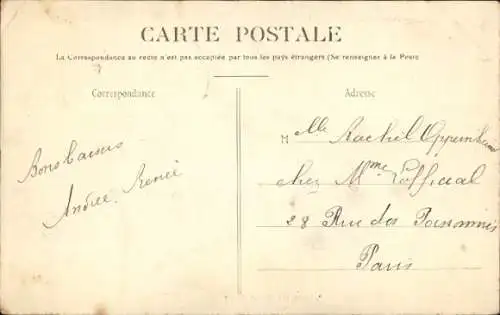 CARTE POSTALE
La Correspondance au recto n'est pas acceptée par tous les pays étrangers (Se renseigner à la Poste
Correspondance
Adresse
Bons baisers
Andrée Renée
Mlle Rachel Oppenheim
chez Mme Lofficial
28 Rue des Poissonniers
Paris